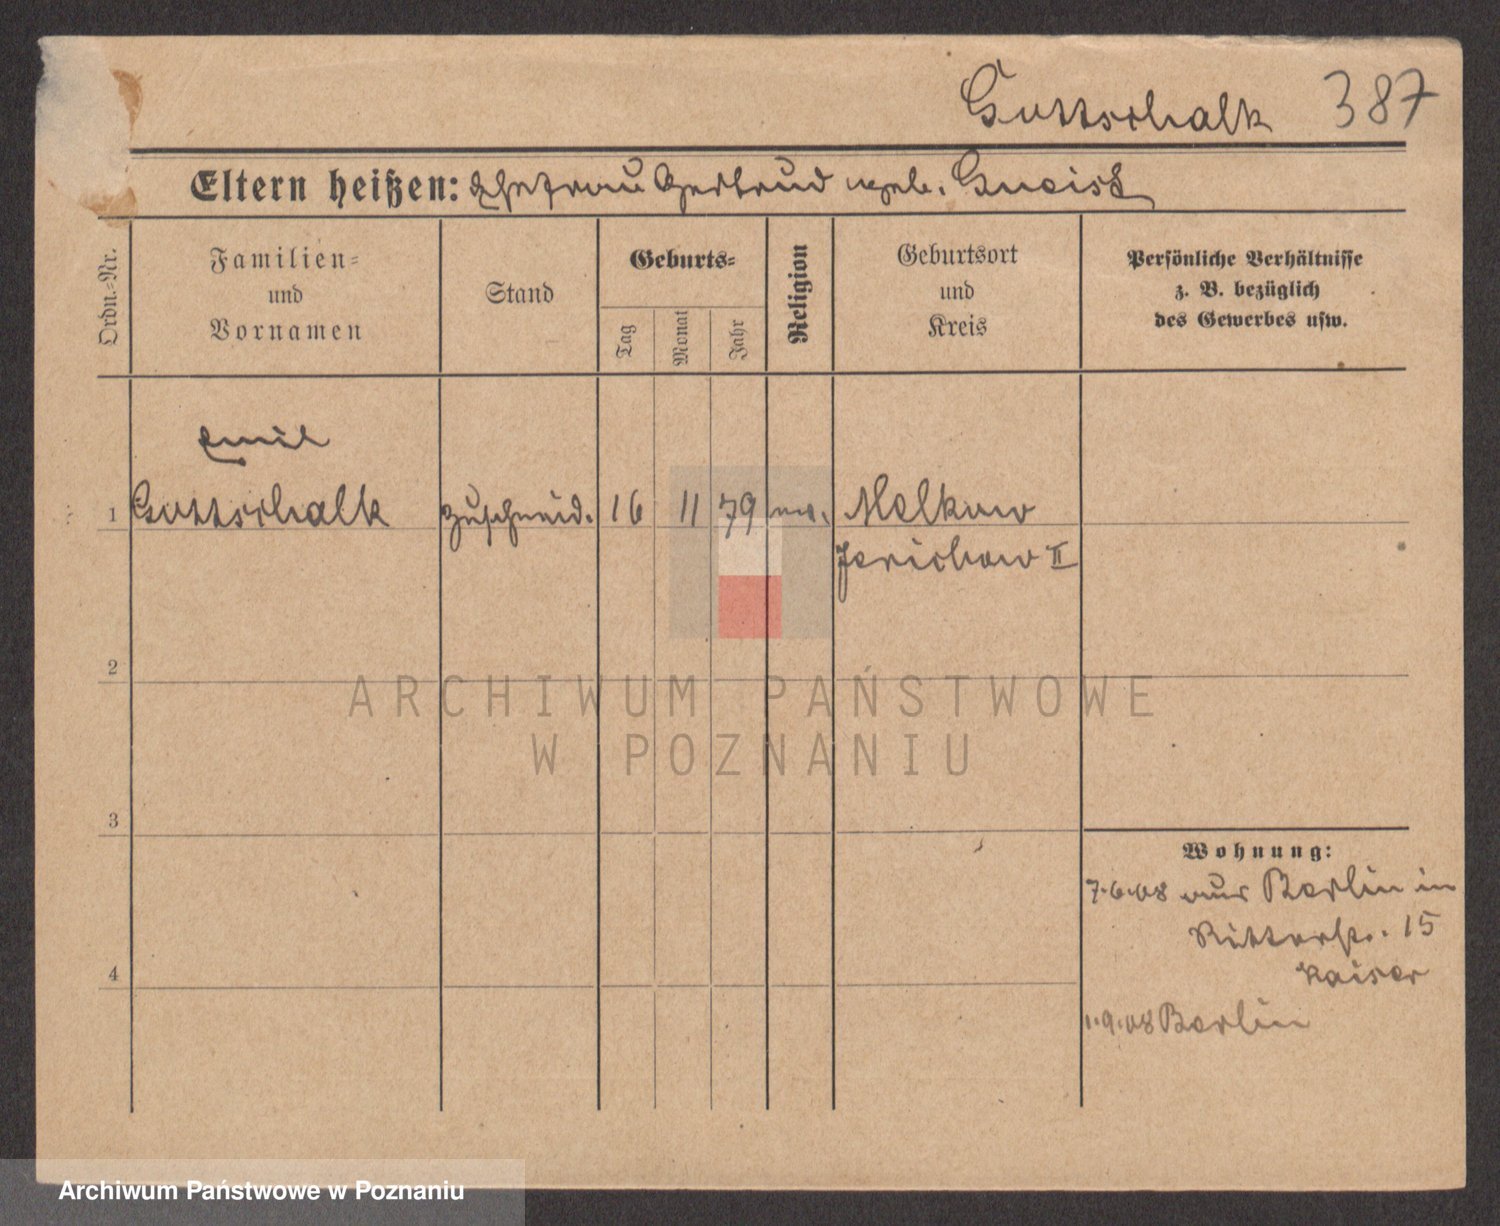 Gottschalk 387
Eltern heißen: Ehefrau Gertrud geb. Gneist
Ordn.-Nr.
Familien-
und
Vornamen
Stand
Geburts-
Tag
Monat
Jahr
Religion
Geburtsort
und
Kreis
Persönliche Verhältnisse
z. B. bezüglich
des Gewerbes usw.
Emil
1 Gottschalk Zuschneid. 16 11 79 ev. Melkow
Jerichow II
2
ARCHIWUM PAŃSTWOWE
W POZNANIU
3
Wohnung:
7.6.08 aus Berlin in
Ritterstr. 15
Kaiser
4
1.9.08 Berlin
Archiwum Państwowe w Poznaniu